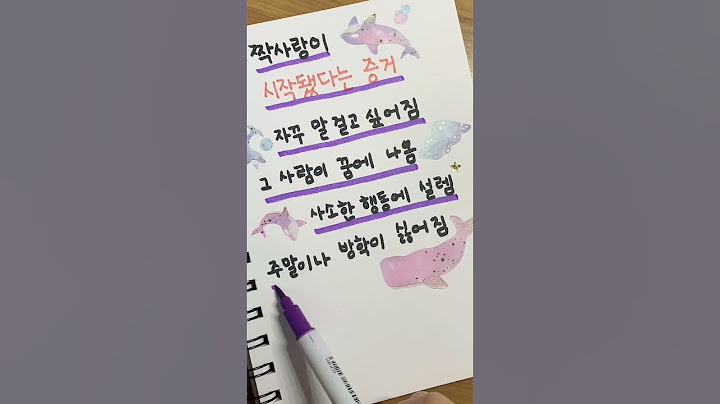 짝사랑이
시작됐다는 증거
자꾸 말 걸고 싶어짐
그 사람이 꿈에 나옴
사소한 행동에 설렘
주말이나 방학이 싫어짐